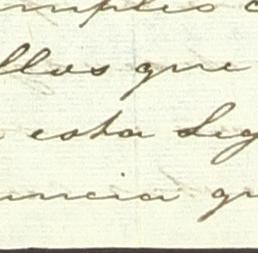 mples
llos que
esta Leg
uncia qu